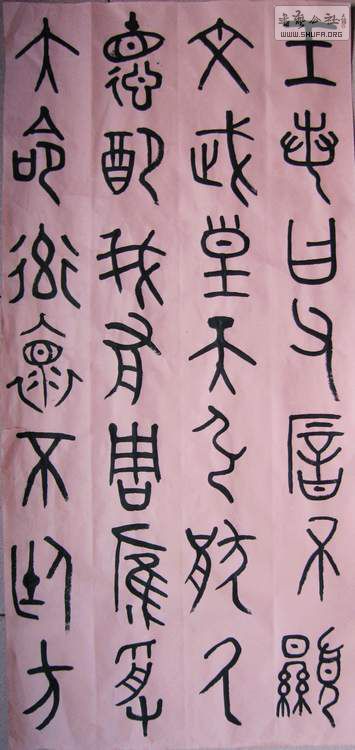 王若曰父厝不顯
文武皇天引猒氒
德配我有周膺受
大命率懷不廷方
WWW.SHUFA.ORG